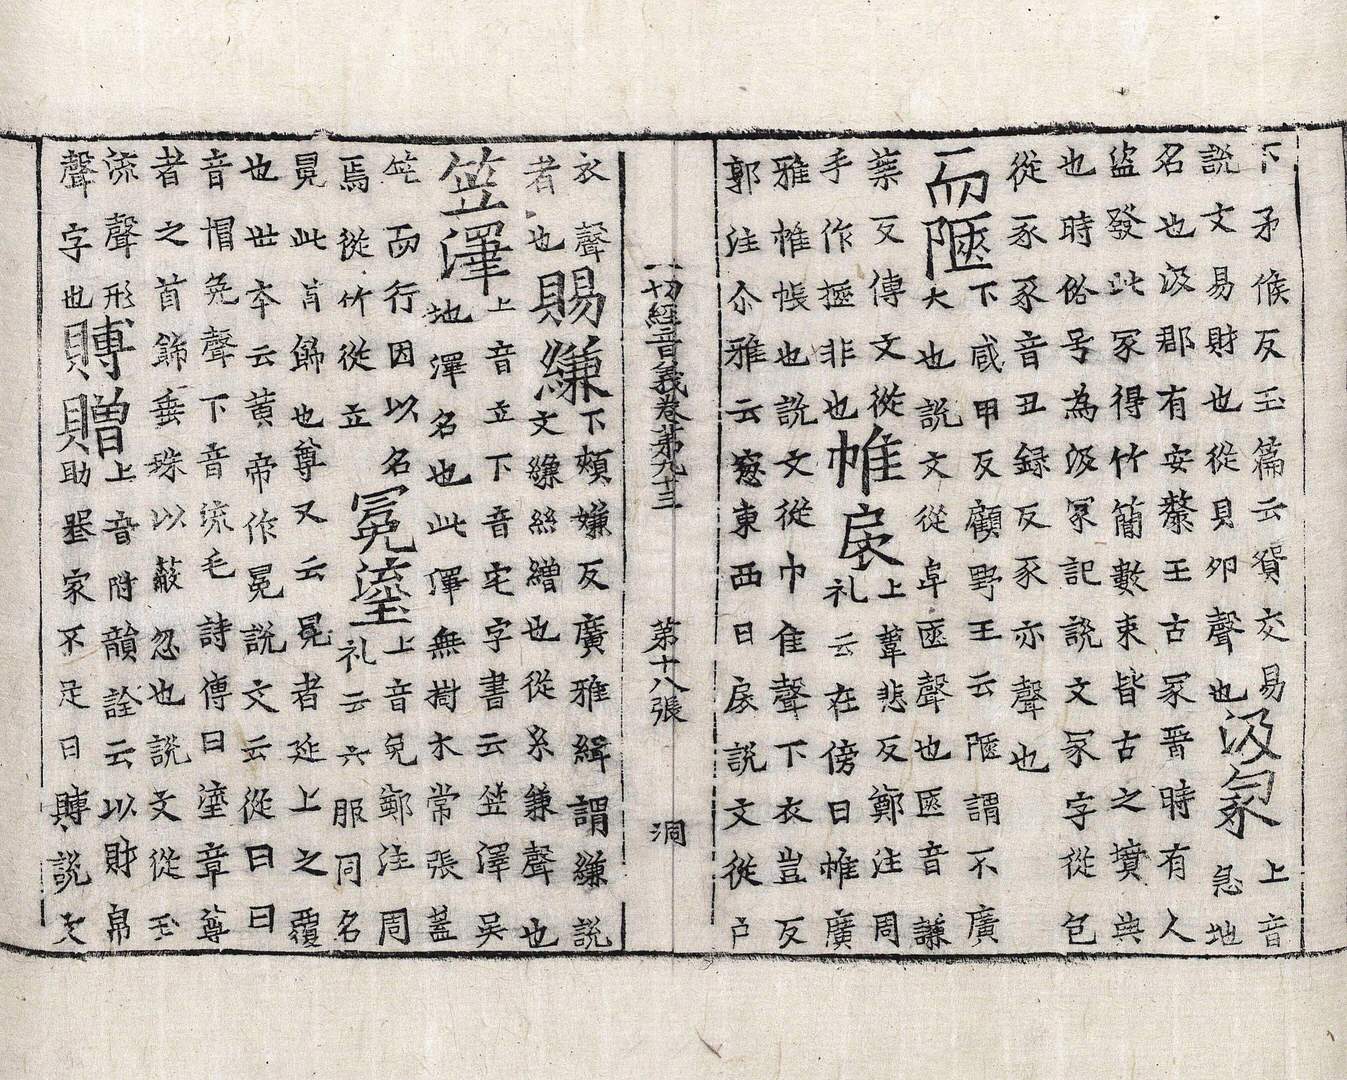 下矛候反玉篇云貿交易上音
説文易財也從貝夘聲也汲冢急地
名也汲郡有安釐王古冢晋時有人
盜發此冢得竹簡數束皆古之墳典
也時俗号為汲冢記説文冢字從包
從豕豕音丑録反豕亦聲也
而陿下咸甲反顧野王云陿謂不廣
大也説文從𨸏匧聲也匧音謙
葉反傳文從
手作挾非也帷扆上葦悲反鄭注周
礼云在傍曰帷廣
雅帷帳也説文從巾隹聲下衣豈反
郭注尒雅云窓東西曰扆説文從户
一切經音義卷第九十三 第十八張 洞
衣聲
者也賜縑下頰嫌反廣雅緝謂縑説
文縑絲繒也從糸兼聲也
笠澤上音立下音宅字書云笠澤吴
地澤名也此澤無樹木常張蓋
笠而行因以名
焉從竹從立冕瑬上音免鄭注周
礼云六服同名
冕此首飾也尊又云冕者延上之覆
也世本云黄帝作冕説文云從曰曰
音帽免聲下音流毛詩傳曰瑬章尊
者之首飾垂珠以蔽忽也説文從玉
流聲形
聲字也賻贈上音附韻詮云以財帛
助喪家不足曰賻説文